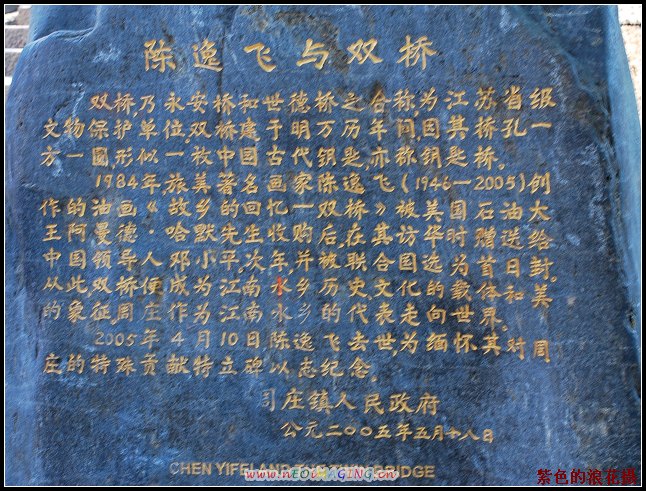 陈逸飞与双桥
双桥,乃永安桥和世德桥之合称,为江苏省级
文物保护单位,双桥建于明万历年间,因其桥孔一
方一圆形似一枚中国古代钥匙,亦称钥匙桥。
1984年,旅美著名画家陈逸飞(1946—2005)创
作的油画《故乡的回忆—双桥》被美国石油大
王阿曼德·哈默先生收购后,在其访华时赠送给
中国领导人邓小平,次年,并被联合国选为首日封。
从此,双桥便成为江南水乡历史,文化的载体和美
的象征,周庄作为江南水乡的代表走向世界。
2005年4月10日陈逸飞去世,为缅怀其对周
庄的特殊贡献特立碑以志纪念。
庄镇人民政府
公元二00五年五月十八日
CHEN YIFEI AND BRIDGE
www.nEOIMAGING.cn
紫色的浪花摄